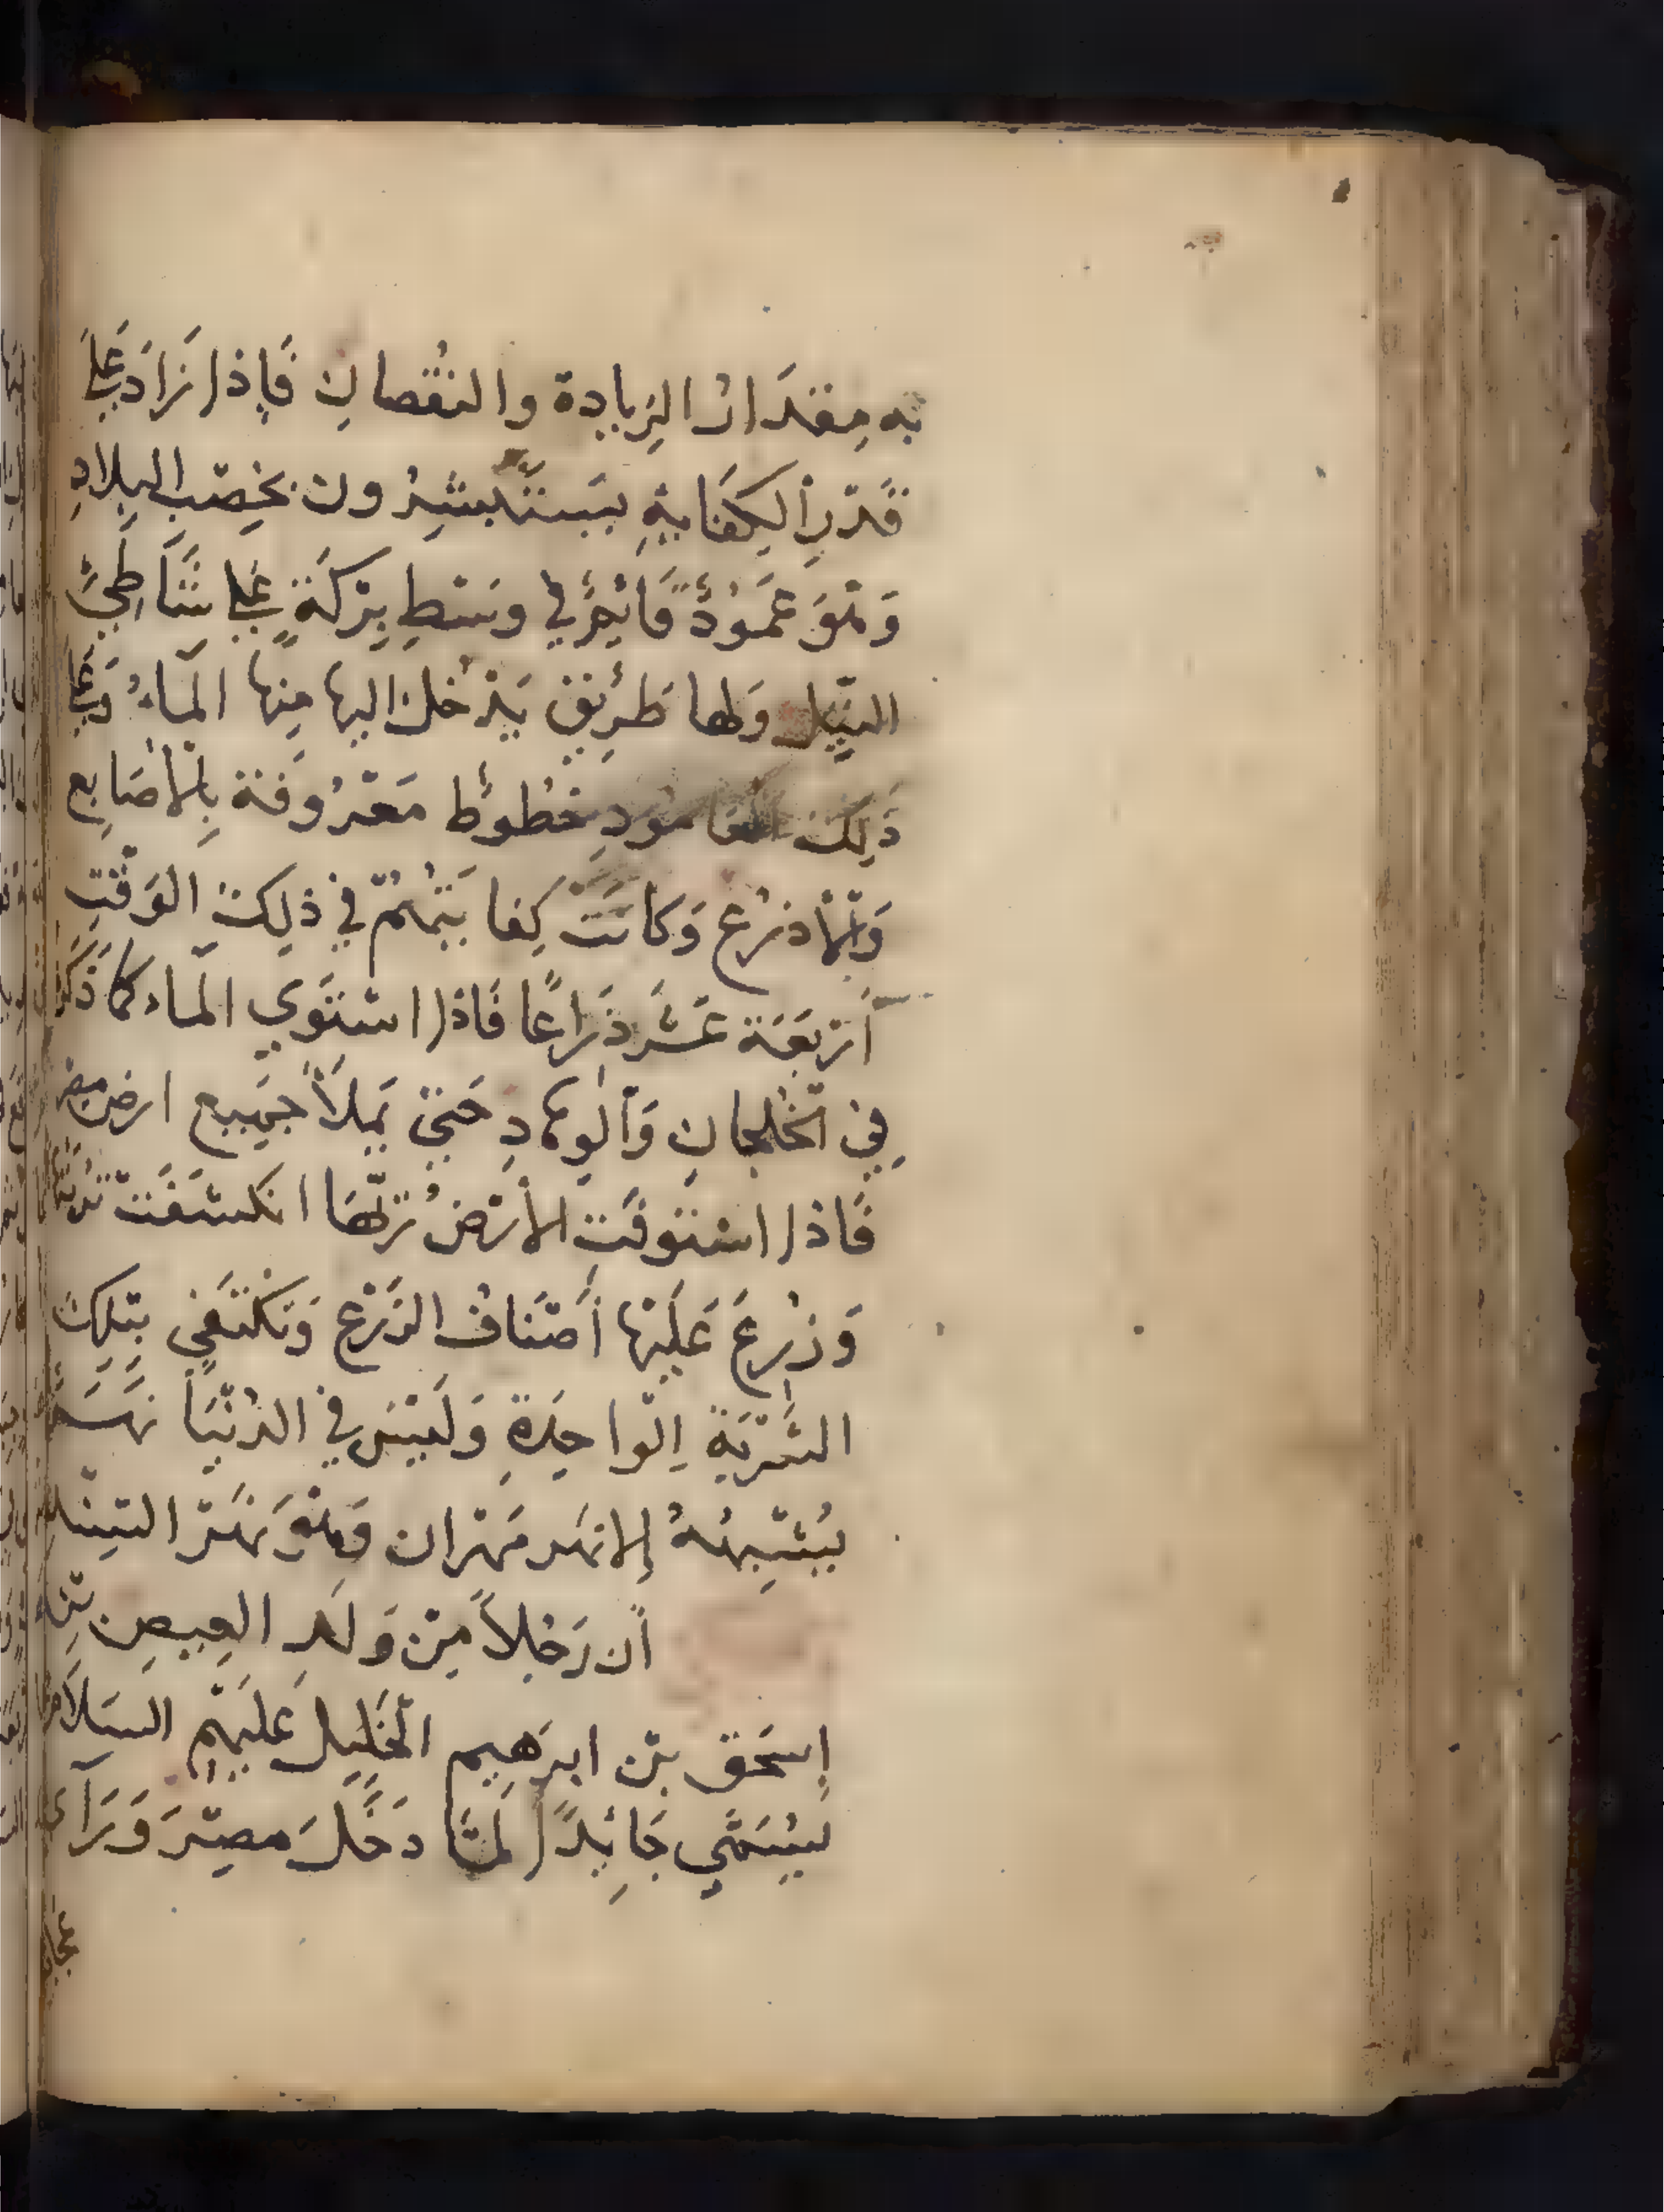 به مِقدَارُ الزِيادة والنقُصانِ فَإِذا زَادَ عَلَى
قَدْرِ ألكِفَايةِ يَستَبشِرُون بخِصْبِ البِلادِ
وَهْوَ عَمُودٌ قَائِمٌ في وسْطِ بِرْكَةٍ عَلى شَاطِئ
النِّيلِ وَلها طَرِيقٌ يَدْخل اليها مِنها المآءُ وَعَلى
ذَلِكَ العامُودِ خطُوطٌ مَعْرُوفة بِالأصَابِع
وَالأذرُع وَكانَتْ كِفايَتُهُمْ في ذلِكَ الوَقْتِ
أرْبَعَة عَشَر ذِرَاعًا فَاذا اسْتَوي المآء كما ذكر
فِي الخُلجانِ وَألوِهَادِ حَتيّ يَملأ جَميع ارض مصر
فَاذا استَوفَتِ الأرْضُ رَيَّهَا انكشفَتْ تُرْبَتُهَا
وَزُرِعَ عَلَيْها أَصْنَافُ الزَرْعِ وَتَكْتَفي بتِلكَ
الشَرْبَةِ الوَاحِدَةِ وَلَيْسَ في الدُنْيَا نهَر
يُشْبِهُهُ إلا نهَر مَهْران وَهْوَ نَهْرُ السِنْد
أن رَجُلاً مِنْ وَلَدِ العِيصِ بْن
إسحَق بْن ابرَهِيم الخَلِيل عَليَهْمِ السَلاَم
يُسَمَّي جَائِدًا لَمَّا دَخَلَ مِصْرَ وَرَآى
عجائب